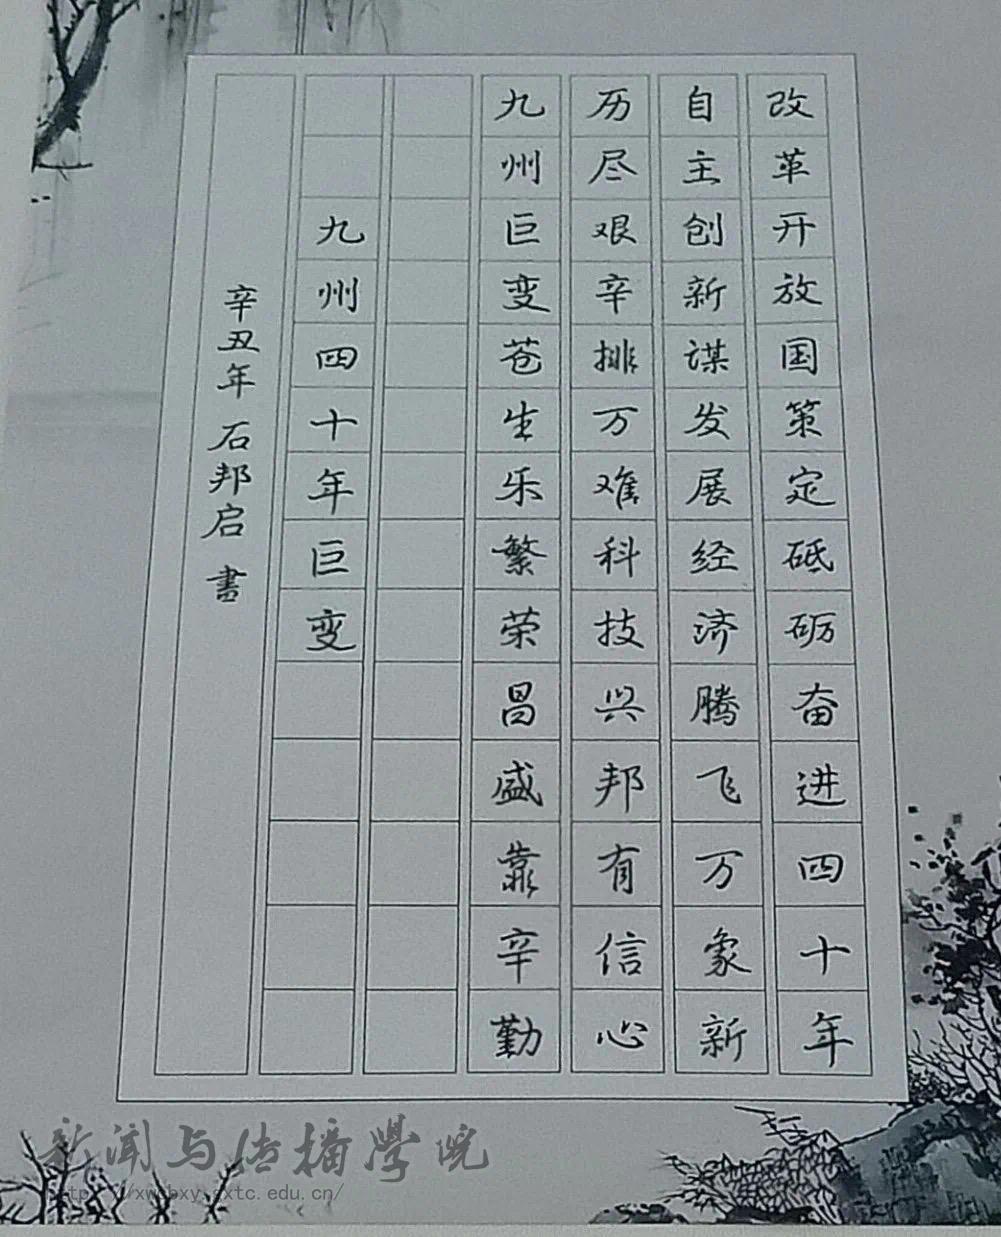 改革开放国策定砥砺奋进四十年
自主创新谋发展经济腾飞万象新
历尽艰辛排万难科技兴邦有信心
九州巨变苍生乐繁荣昌盛靠辛勤
九州四十年巨变
辛丑年 石邦启 書
新闻与传播学院
http://xwcbxy.gxtc.edu.cn/